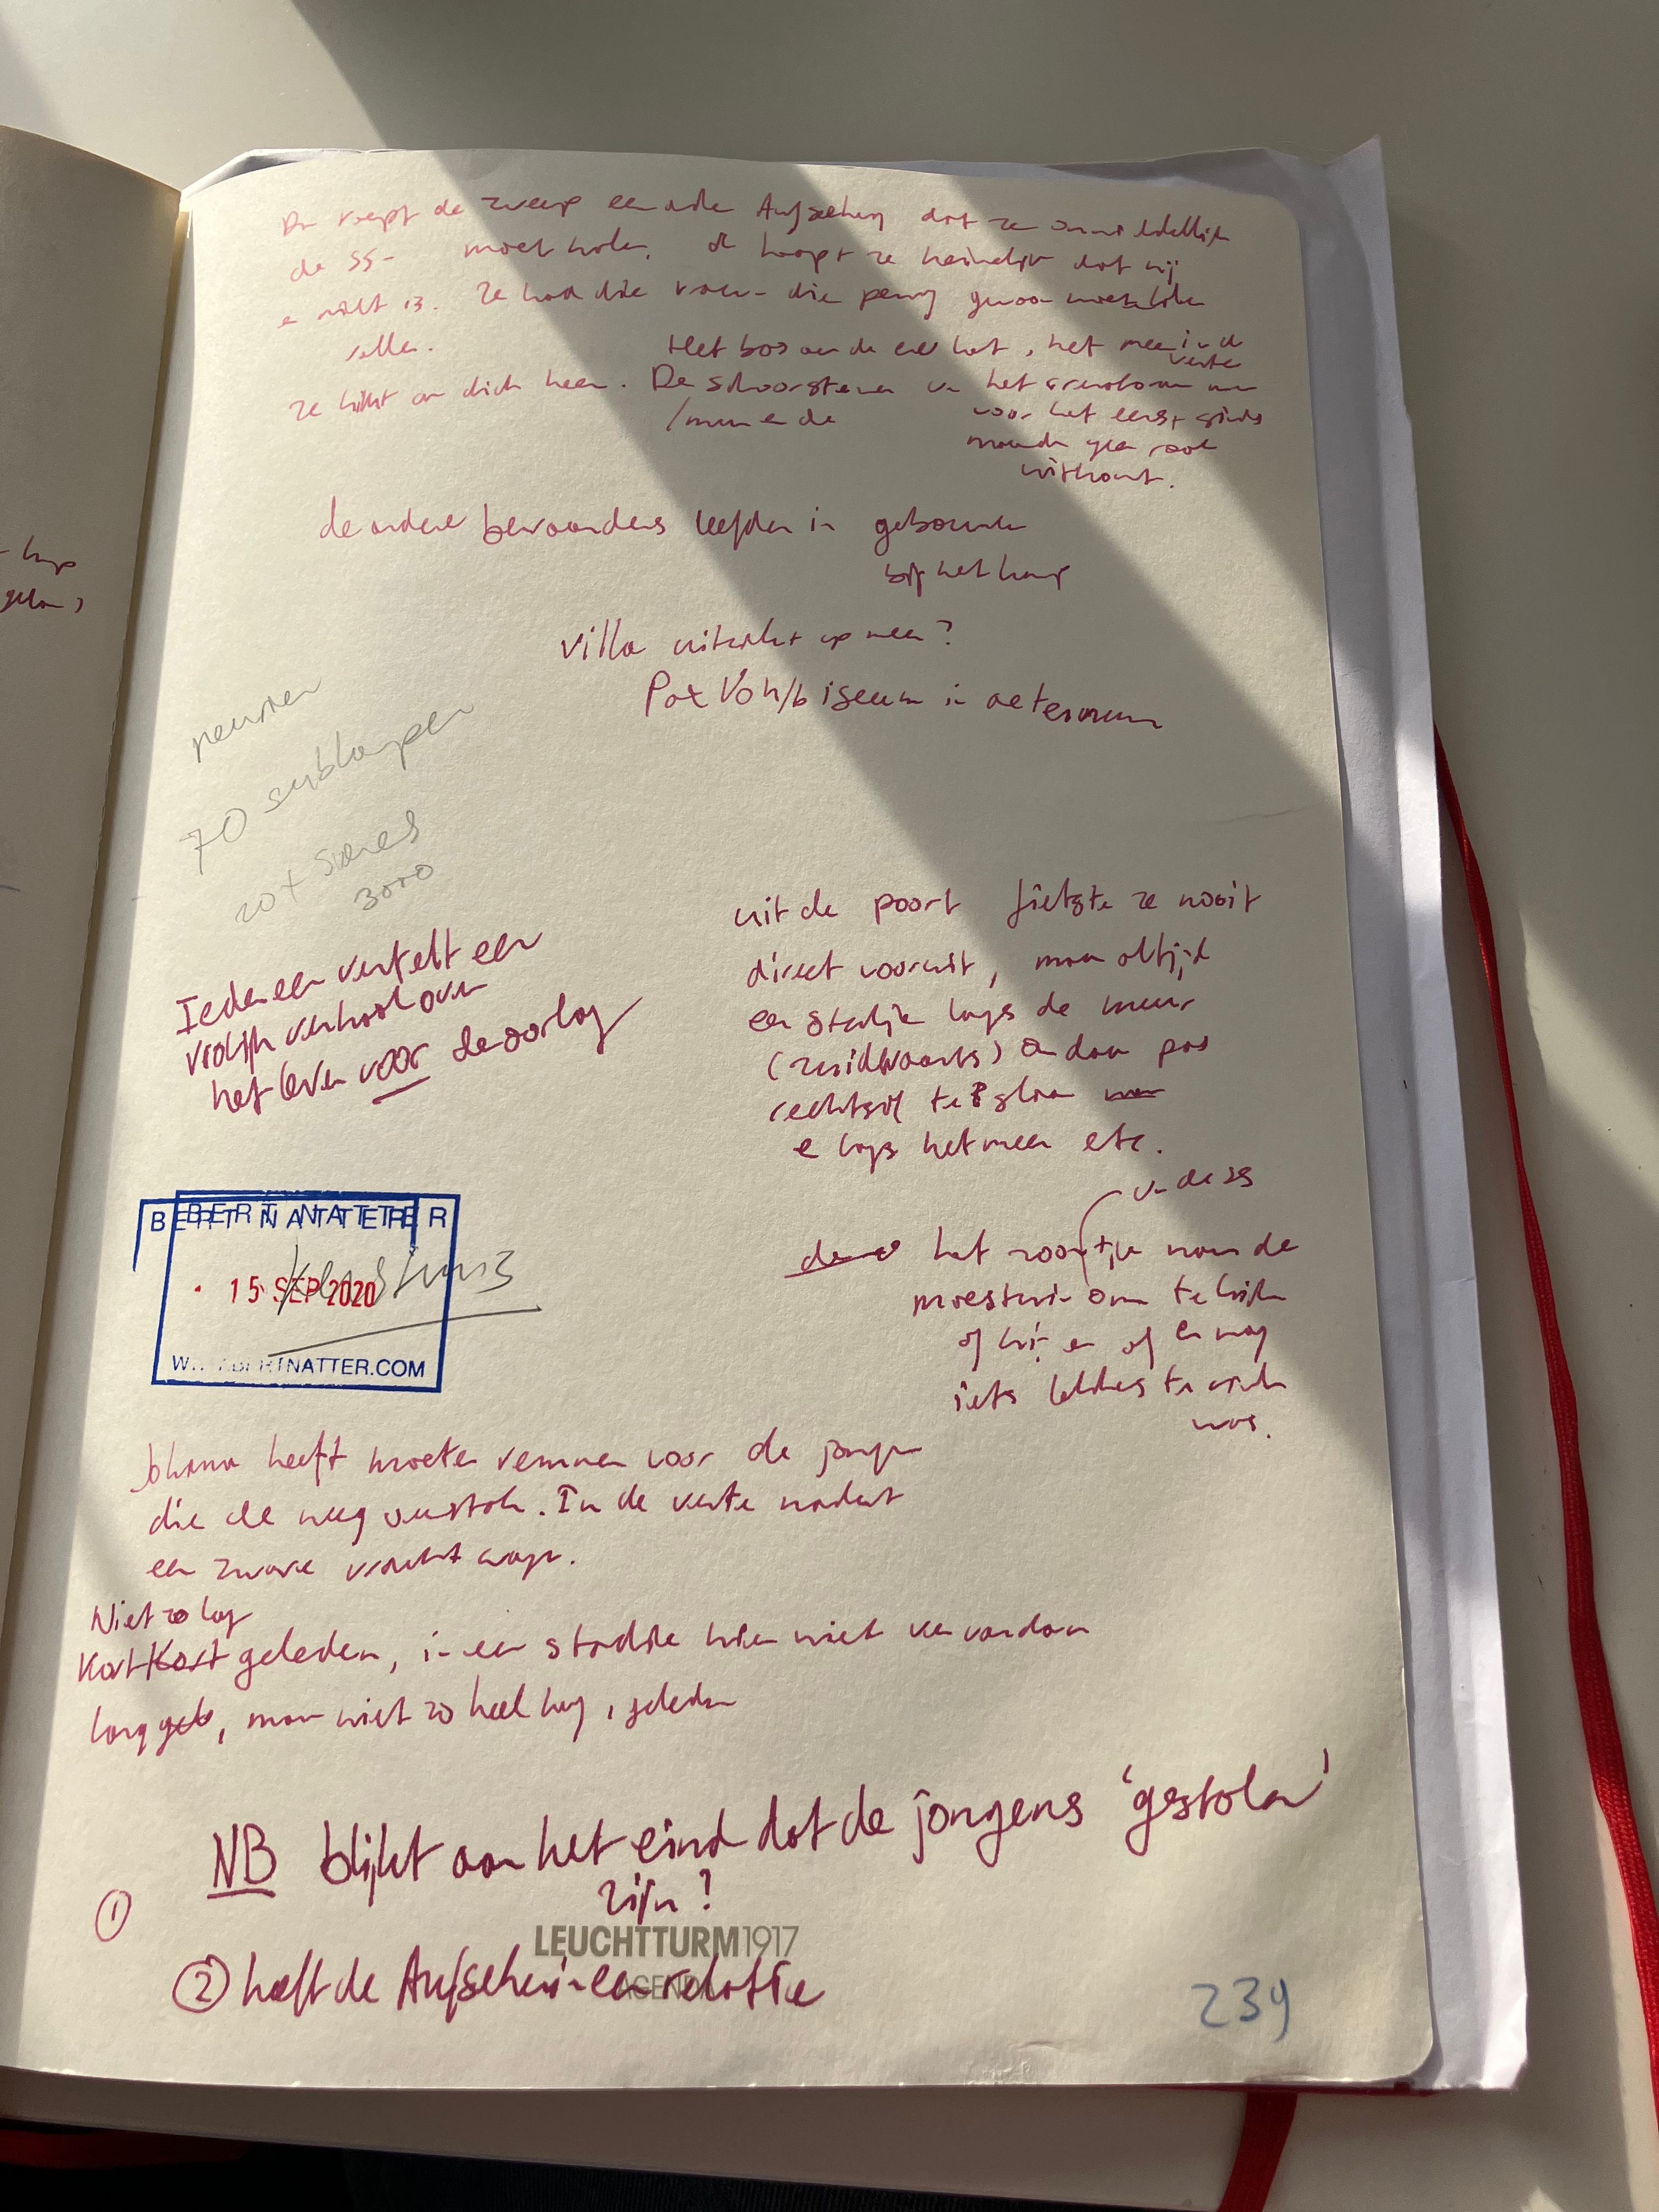 de zweep een Aufseherin dat ze onmiddellijk
de SS- moet halen. hoopt ze heimelijk dat hij
er niet is. Ze had die vrouw die gewoon moeten laten
Het bos aan de overkant, het meer in de
verte
ze kijkt om zich heen. De schoorstenen van het crematorium
voor het eerst sinds
geen rook
de andere bewaarders leefden in gebouwen
bij het kamp
villa uitzicht op meer?
Pax Vobiscum in aeternum
70
20 x
3000
Iedereen vertelt een
vrolijk verhaal over
het leven voor de oorlog
uit de poort fietste ze nooit
direct vooruit, maar altijd
een stukje langs de muur
(zuidwaarts) en dan pas
rechtsaf te slaan
en langs het meer etc.
van de SS
het zoontje van de
om te kijken
of hij er of er nog
iets lekkers te vinden
was.
BERT NATTER
15 SEP 2020
WWW.BERTNATTER.COM
Johanna heeft moeten remmen voor de jongen
die de weg overstak. In de verte nadert
een zware vrachtwagen.
Niet zo lang
Kort Kort geleden, in een stadje hier niet ver vandaan
lang gele, maar niet zo heel lang, geleden
NB blijkt aan het eind dat de jongens 'gestolen'
zijn?
①
LEUCHTTURM1917
② heeft de Aufseherin een relatie
AGENDA
239